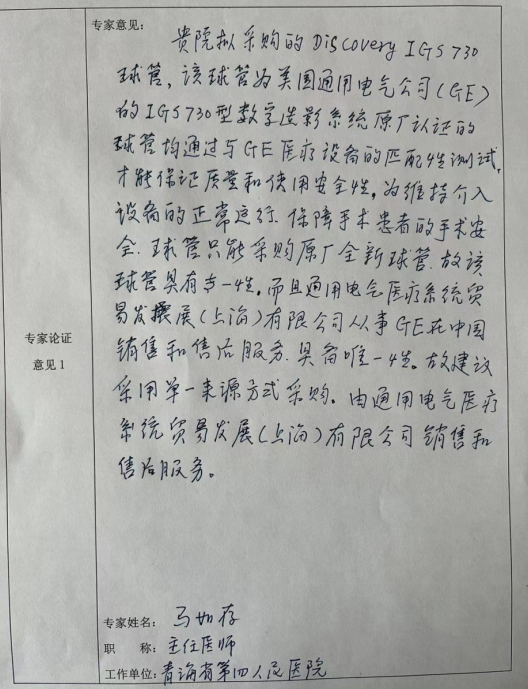 专家意见:
贵院拟采购的 Discovery IGS 730
球管，该球管为美国通用电气公司(GE)
的IGS730型数字造影系统原厂认证的
球管均通过与GE医疗设备的匹配性测试,
才能保证质量和使用安全性，为维持介入
设备的正常运行.保障手术患者的手术安
全.球管只能采购原厂全新球管.故该
球管具有唯一性，而且通用电气医疗系统贸
易发展(上海)有限公司从事GE在中国
销售和售后服务.具备唯一性。故建议
采用单一来源方式采购．由通用电气医疗
系统贸易发展(上海)有限公司销售和
售后服务。
专家论证
意见 1
专家姓名: 马如存
职 称: 主任医师
工作单位: 青海省第四人民医院